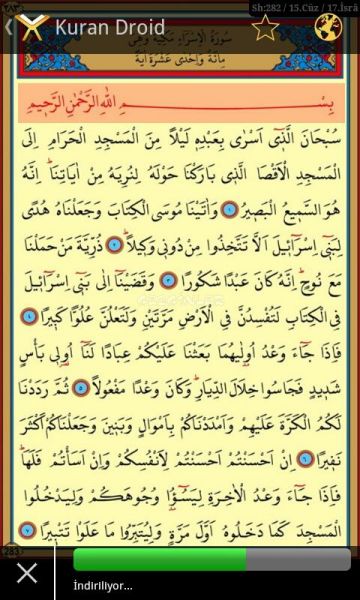 Sh:282 / 15.Cüz / 17.İsrâ
Kuran Droid
سُورَةُ الْاِسْرَاءِ مَكِّيَّةٌ وَهِيَ
مِائَةٌ وَاِحْدٰى عَشْرَةَ اٰيَةً
بِسْمِ اللّٰهِ الرَّحْمٰنِ الرَّحِيمِ
سُبْحَانَ الَّذٖٓي اَسْرٰى بِعَبْدِهٖ لَيْلًا مِنَ الْمَسْجِدِ الْحَرَامِ اِلَى
الْمَسْجِدِ الْاَقْصَا الَّذٖي بَارَكْنَا حَوْلَهُ لِنُرِيَهُ مِنْ اٰيَاتِنَاۜ اِنَّهُ
هُوَ السَّمٖيعُ الْبَصٖيرُ ١ وَاٰتَيْنَا مُوسَى الْكِتَابَ وَجَعَلْنَاهُ هُدًى
لِبَنٖٓي اِسْرَٓائٖلَ اَلَّا تَتَّخِذُوا مِنْ دُونٖي وَكٖيلًاۜ ٢ ذُرِّيَّةَ مَنْ حَمَلْنَا
مَعَ نُوحٍۜ اِنَّهُ كَانَ عَبْدًا شَكُورًا ٣ وَقَضَيْنَٓا اِلٰى بَنٖٓي اِسْرَٓائٖلَ
فِي الْكِتَابِ لَتُفْسِدُنَّ فِي الْاَرْضِ مَرَّتَيْنِ وَلَتَعْلُنَّ عُلُوًّا كَبٖيرًا ٤
فَاِذَا جَٓاءَ وَعْدُ اُو۫لٰيهُمَا بَعَثْنَا عَلَيْكُمْ عِبَادًا لَنَٓا اُو۬لٖي بَأْسٍ
شَدٖيدٍ فَجَاسُوا خِلَالَ الدِّيَارِۜ وَكَانَ وَعْدًا مَفْعُولًا ٥ ثُمَّ رَدَدْنَا
لَكُمُ الْكَرَّةَ عَلَيْهِمْ وَاَمْدَدْنَاكُمْ بِاَمْوَالٍ وَبَنٖينَ وَجَعَلْنَاكُمْ اَكْثَرَ
نَفٖيرًا ٦ اِنْ اَحْسَنْتُمْ اَحْسَنْتُمْ لِاَنْفُسِكُمْ وَاِنْ اَسَأْتُمْ فَلَهَاۜ
فَاِذَا جَٓاءَ وَعْدُ الْاٰخِرَةِ لِيَسُٓؤُ۫ا وُجُوهَكُمْ وَلِيَدْخُلُوا
الْمَسْجِدَ كَمَا دَخَلُوهُ اَوَّلَ مَرَّةٍ وَلِيُتَبِّرُوا مَا عَلَوْا تَتْبٖيرًا ٧
283
İndiriliyor...